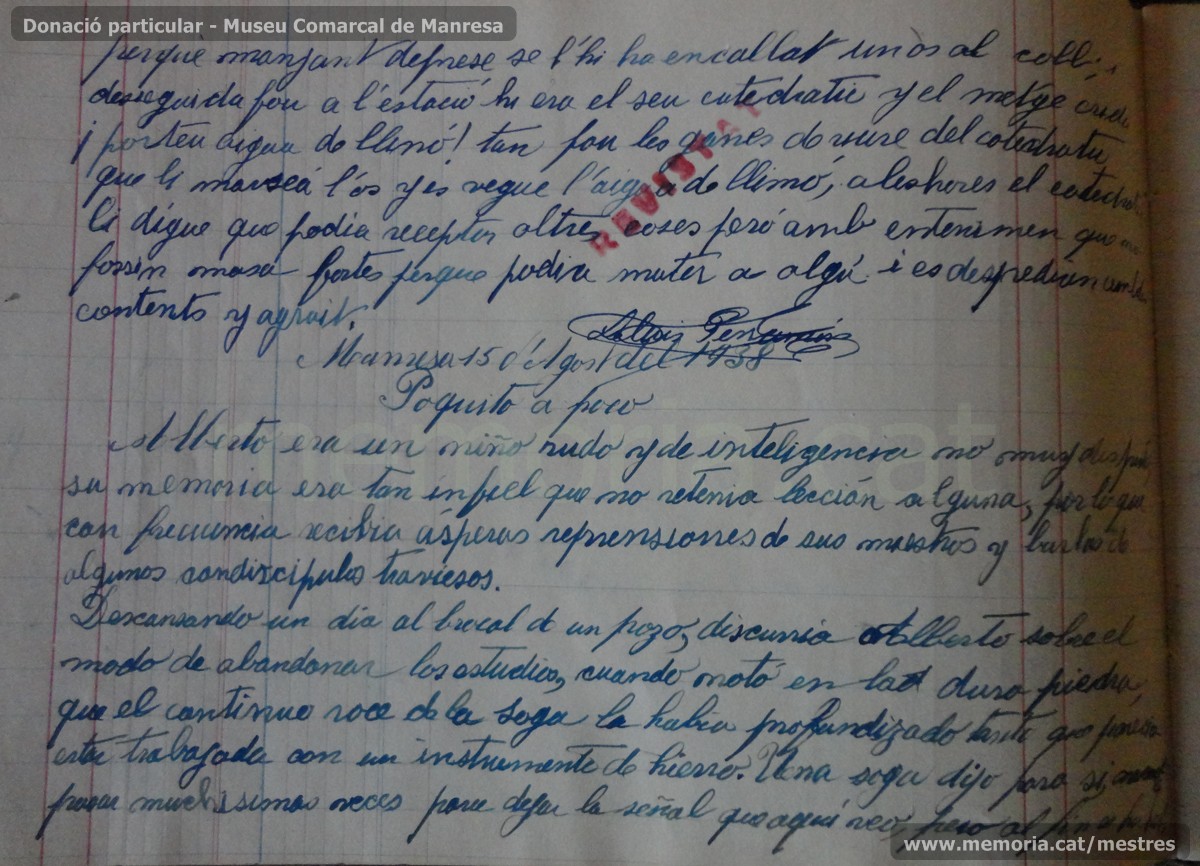 Donació particular - Museu Comarcal de Manresa
perquè manjant deprese se l'hi ha encallat un òs al coll i
desseguida fou a l'estació hi era el seu catedratic y el metge crida
¡porteu aigua de llimó! tan fou les ganes de riure del catedratic
que li marxá l'òs y es vegue l'aigua de llimó, aleshores el catedratic
li digue que podia receptar altres coses però amb enteniment que no
fossin masa fortes perque podia matar a algú i es despediran
contents y agrait.
REVISAT
Manresa 15 d'Agost del 1938
Poquito a poco
Alberto era un niño rudo y de inteligencia no muy
su memoria era tan infiel que no retenia lección alguna, por lo que
con frecuencia recibia ásperas reprensiones de sus maestros y burlas de
algunos condiscipulos traviesos.
Descansando un dia al brocal de un pozo, discurria Alberto sobre el
modo de abandonar los estudios, cuando notó en la dura piedra,
que el continuo roce de la soga la habia profundizado tanto que parecia
estar trabajada con un instrumento de hierro. Una soga dijo para si,
pasar muchisimas veces para dejar la señal que aqui veo, pero al fin
www.memoria.cat/mestres
memoria.cat